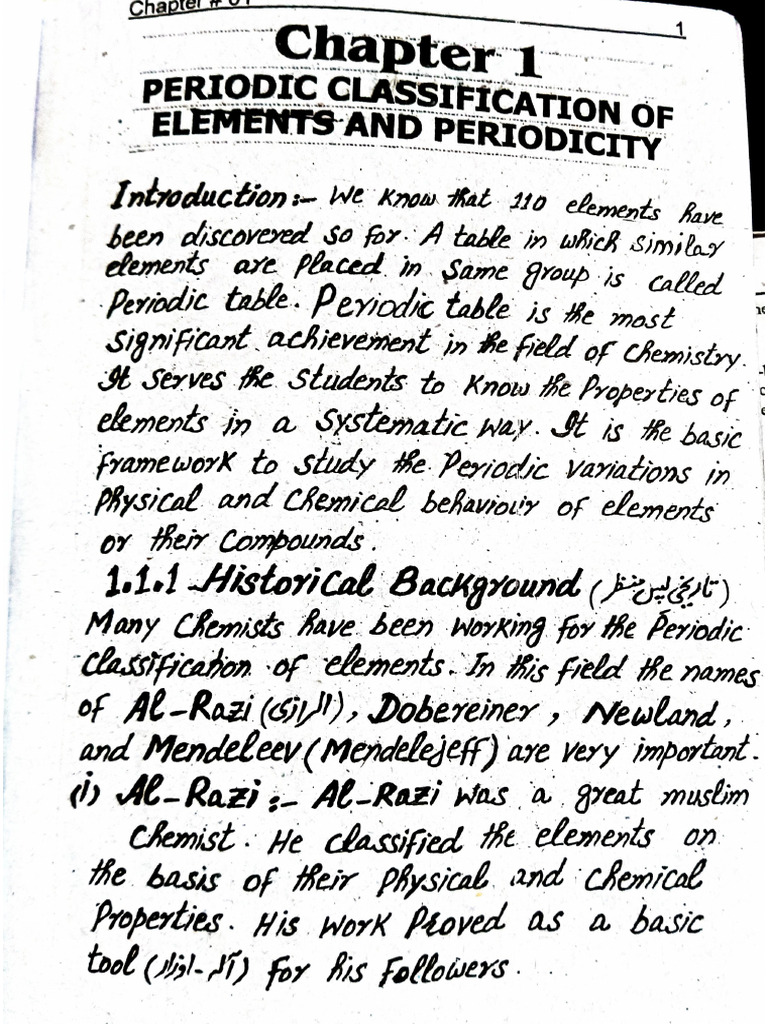 Chapter # 01
1
Chapter 1
PERIODIC CLASSIFICATION OF
ELEMENTS AND PERIODICITY
Introduction:- We know that 110 elements have
been discovered so for. A table in which similar
elements are placed in same group is called
Periodic table. Periodic table is the most
significant achievement in the field of chemistry.
It serves the students to know the properties of
elements in a systematic way. It is the basic
framework to study the Periodic variations in
physical and chemical behaviour of elements
or their compounds.
1.1.1 Historical Background (تاریخی پس منظر)
Many chemists have been working for the Periodic
classification of elements. In this field the names
of Al-Razi (الرازی), Dobereiner, Newland,
and Mendeleev (Mendelejeff) are very important.
(i) Al-Razi:- Al-Razi was a great muslim
chemist. He classified the elements on
the basis of their physical and chemical
Properties. His work proved as a basic
tool (آلہ - اوزار) for his followers.